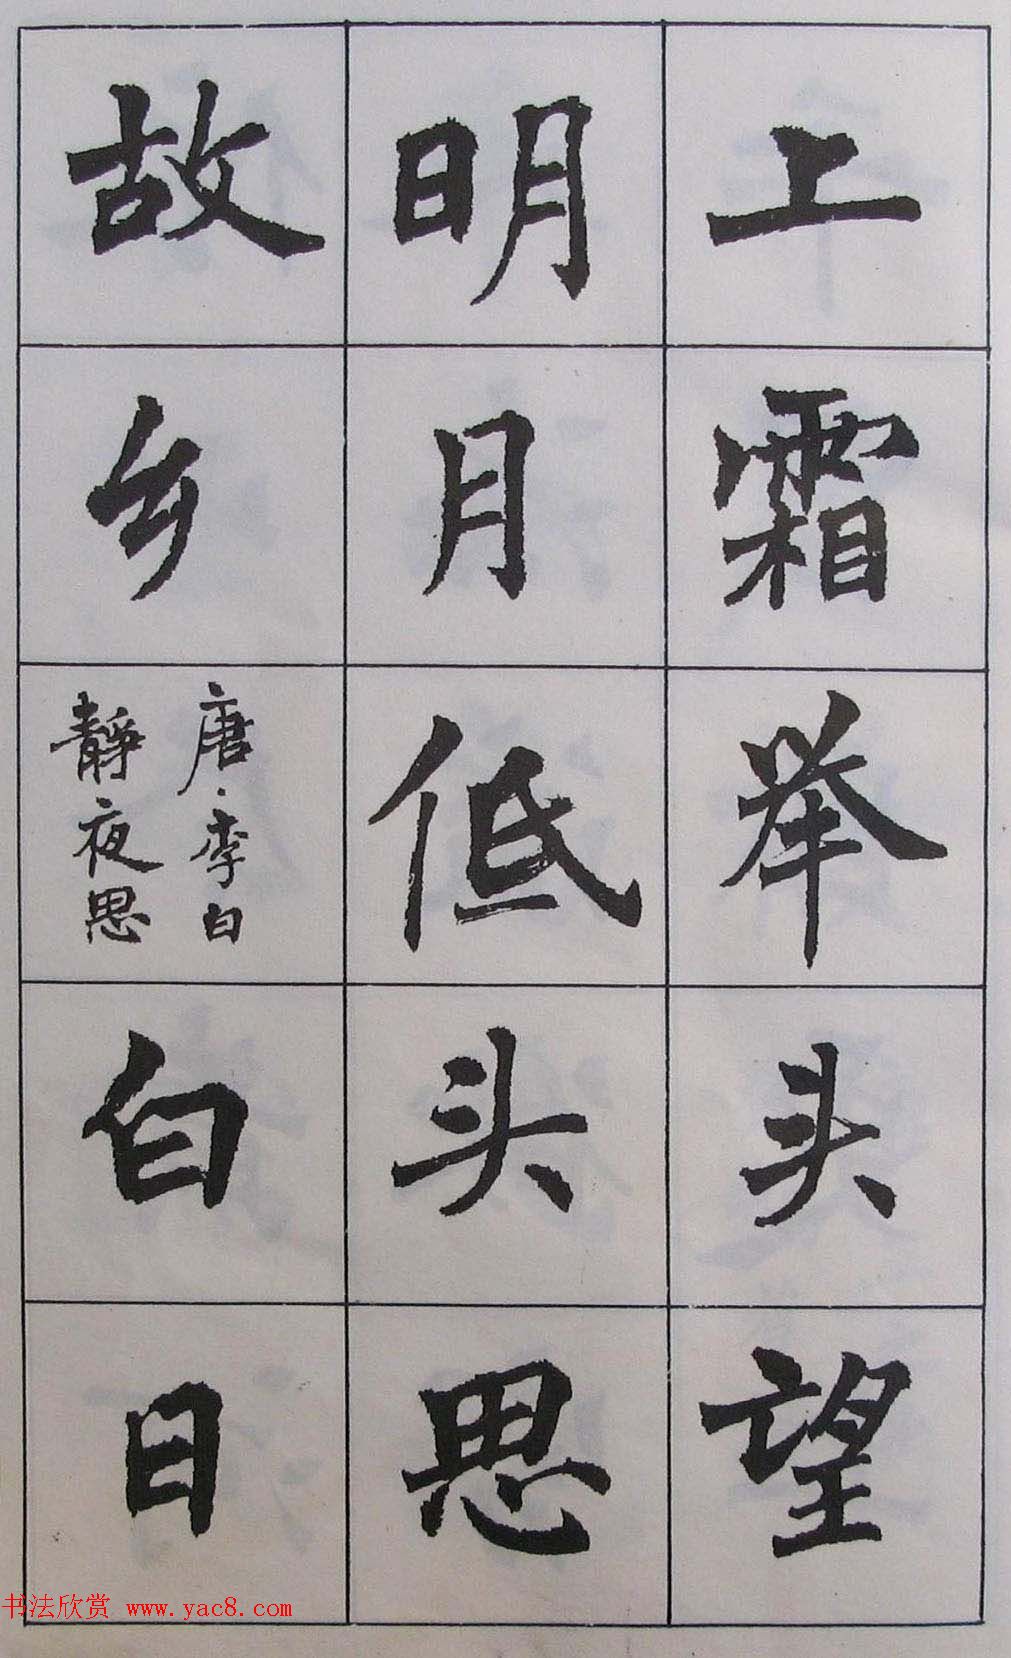 上霜举头望
明月低头思
故乡
唐·李白
靜夜思
白日
书法欣赏 www.yac8.com